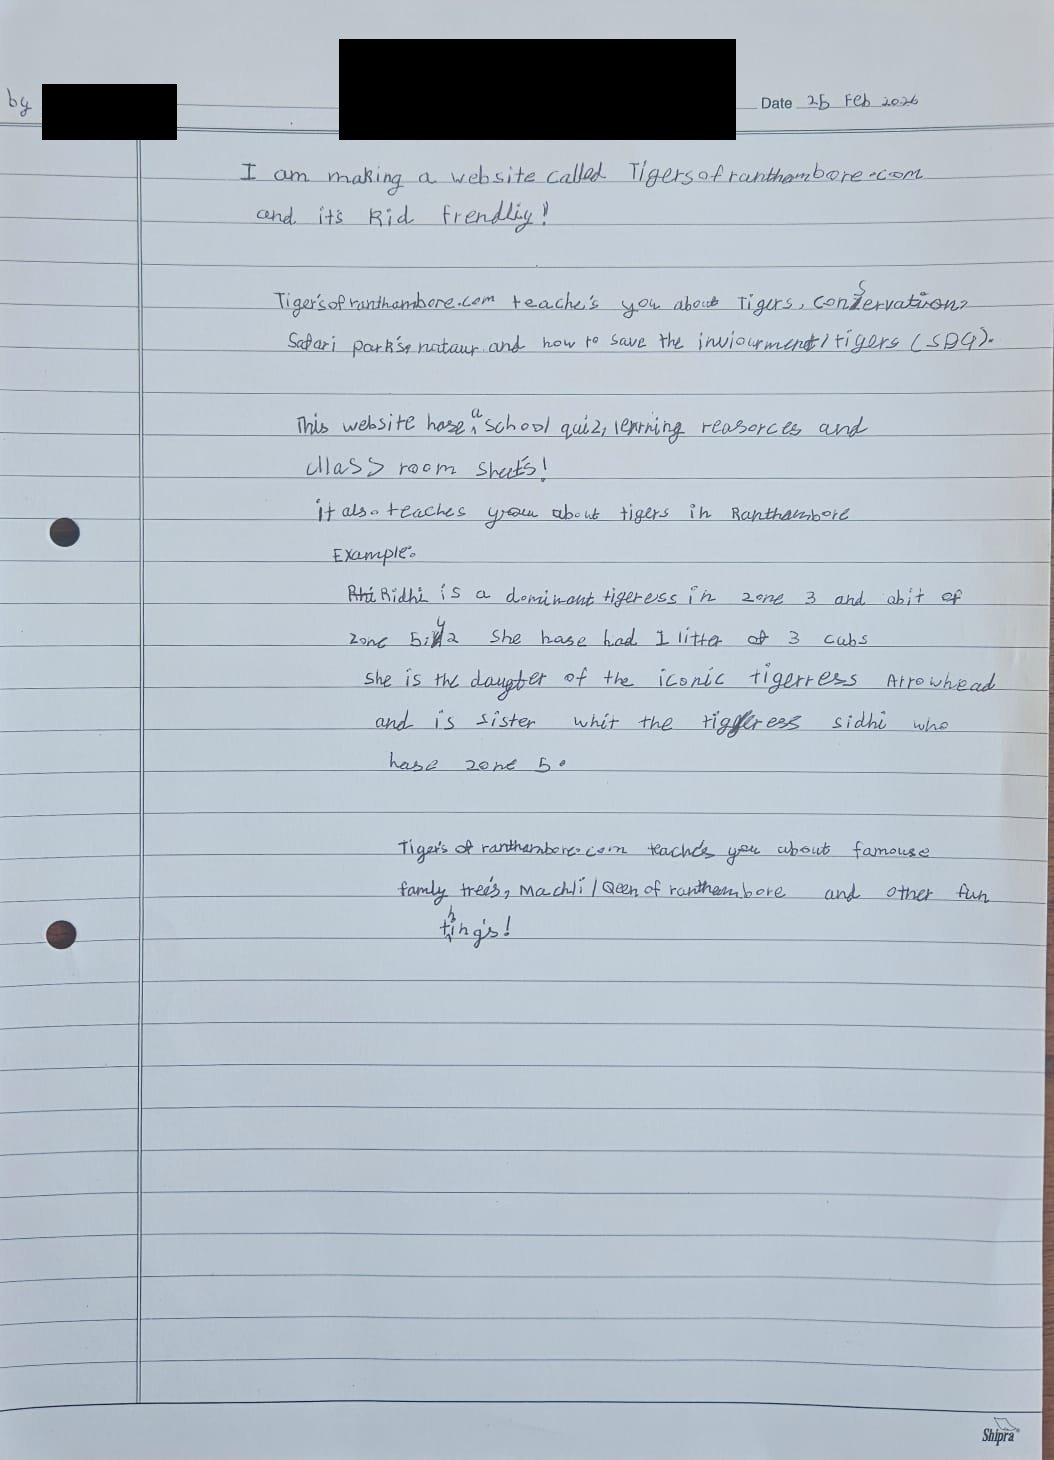 by
Date 25 Feb 2026
I am making a website called Tigersofranthambore.com
and it's kid frendliy!
Tiger'sofranthambore.com teache's you about Tigers, Conservation,
Safari park's, nataur and how to save the inviourment/tigers (SDG).
This website hase a school quiz, lerning reasorces and
class room sheets!
it also teaches you about tigers in Ranthambore
Example:
Ridhi is a dominant tigeress in zone 3 and abit of
zone 4, 2 She hase had 1 litter of 3 cubs
she is the daugter of the iconic tigerress Arrowhead
and is sister whit the tiggeress sidhi who
hase zone 5.
Tiger's of ranthambore.com teache's you about famouse
famly tree's, Machli/Qeen of ranthambore and other fun
thing's!
Shipra